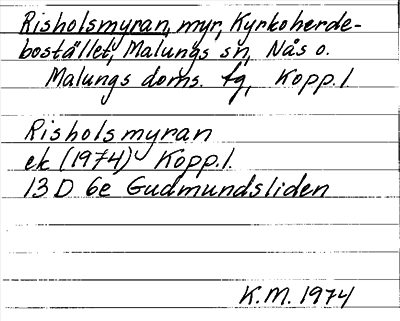 Risholsmyran, myr, Kyrkoherde-
bostället, Malungs sn, Nås o.
Malungs doms. fg, Kopp. l
Risholsmyran
ek (1974) Kopp. l.
13 D 6e Gudmundsliden
K.M. 1974